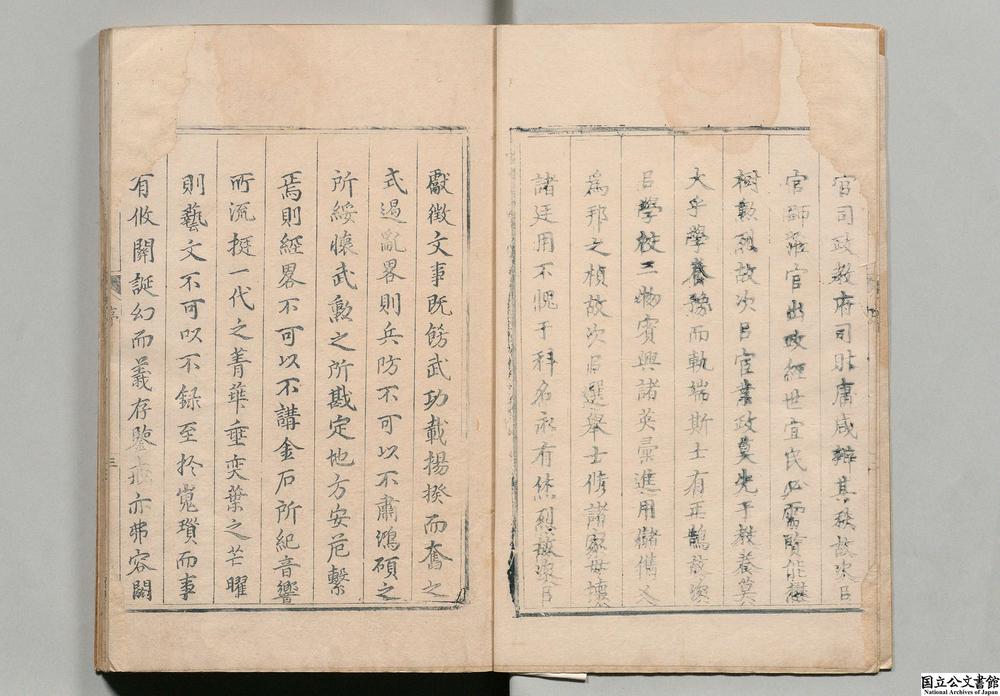 官司政教府司此庸咸辨其秩故次曰
官師設官出政經世宜民必需賢能懋
樹勲烈故次曰官業政莫先于教養莫
大乎學養豫而軌端斯士有正鵠故次
曰學校三物賓興諸英彙進用儲僃文
為邦之楨故次曰選舉士脩諸家毋壊
諸廷用不愧于科名永有休烈故次曰
獻徵文事既餝武功載揚揆而奮之
式遏亂畧則兵防不可以不肅鴻碩之
所綏懷武勲之所戡定地方安危繫
焉則經畧不可以不講金石所紀音響
所流挺一代之菁華垂奕葉之芒曜
則藝文不可以不錄至於嵬瑣而事
有攸關誕幻而義存鑒戒亦弗容闕
序
国立公文書館
National Archives of Japan